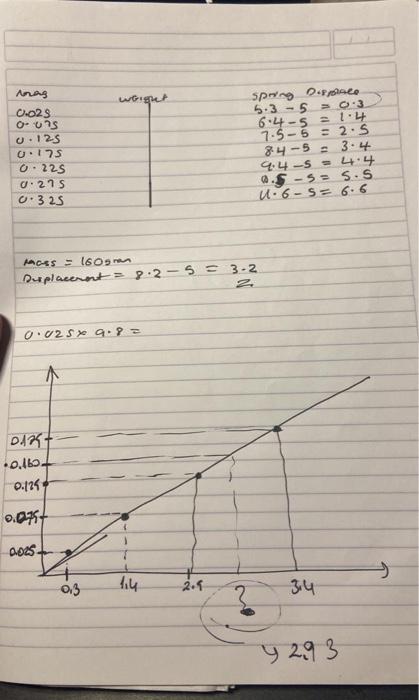 mass weight spring Displace
0.025 5.3 - 5 = 0.3
0.075 6.4 - 5 = 1.4
0.125 7.5 - 5 = 2.5
0.175 8.4 - 5 = 3.4
0.225 9.4 - 5 = 4.4
0.275 - 5 = 5.5
0.325 11.6 - 5 = 6.6
mass = 160gram
Displacement = 8.2 - 5 = 3.2
0.025 x 9.8 =
0.175
0.160
0.125
0.075
0.025
0.3 1.4 2.5 ? 3.4
2.93